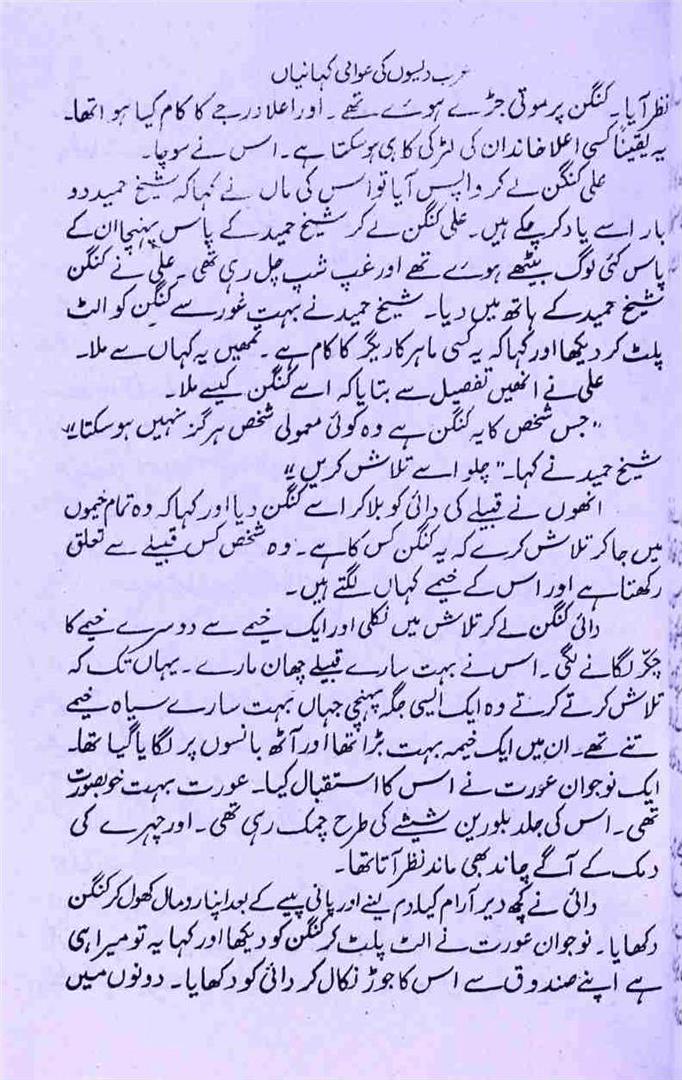 عرب دیسوں کی عوامی کہانیاں
نظر آیا۔ کنگن پر موتی جڑے ہوے تھے۔ اور اعلا درجے کا کام کیا ہوا تھا۔
یہ یقیناً کسی اعلا خاندان کی لڑکی کا ہی ہو سکتا ہے۔ اس نے سوچا۔
علی کنگن لے کر واپس آیا تو اس کی ماں نے کہا کہ شیخ حمید دو
بار اسے یاد کر چکے ہیں۔ علی کنگن لے کر شیخ حمید کے پاس پہنچا ان کے
پاس کئی لوگ بیٹھے ہوے تھے اور غپ شپ چل رہی تھی۔ علی نے کنگن
شیخ حمید کے ہاتھ میں دیا۔ شیخ حمید نے بہت غور سے کنگن کو الٹ
پلٹ کر دیکھا اور کہا کہ یہ کسی ماہر کاریگر کا کام ہے۔ تمھیں یہ کہاں سے ملا۔
علی نے انھیں تفصیل سے بتایا کہ اسے کنگن کیسے ملا۔
"جس شخص کا یہ کنگن ہے وہ کوئی معمولی شخص ہرگز نہیں ہو سکتا"
شیخ حمید نے کہا۔ "چلو اسے تلاش کریں"
انھوں نے قبیلے کی دائی کو بلا کر اسے کنگن دیا اور کہا کہ وہ تمام خیموں
میں جا کر تلاش کرے کہ یہ کنگن کس کا ہے۔ وہ شخص کس قبیلے سے تعلق
رکھتا ہے اور اس کے خیمے کہاں لگتے ہیں۔
دائی کنگن لے کر تلاش میں نکلی اور ایک خیمے سے دوسرے خیمے کا
چکّر لگانے لگی۔ اس نے بہت سارے قبیلے چھان مارے۔ یہاں تک کہ
تلاش کرتے کرتے وہ ایک ایسی جگہ پہنچی جہاں بہت سارے سیاہ خیمے
تنے تھے۔ ان میں ایک خیمہ بہت بڑا تھا اور آٹھ بانسوں پر لگایا گیا تھا۔
ایک نوجوان عورت نے اس کا استقبال کیا۔ عورت بہت خوبصورت
تھی۔ اس کی جلد بلورین شیشے کی طرح چمک رہی تھی۔ اور چہرے کی
دمک کے آگے چاند بھی ماند نظر آتا تھا۔
دائی نے کچھ دیر آرام کیا۔ دم لینے اور پانی پینے کے بعد اپنا رومال کھول کر کنگن
دکھایا۔ نوجوان عورت نے الٹ پلٹ کر کنگن کو دیکھا اور کہا یہ تو میرا ہی
ہے اپنے صندوق سے اس کا جوڑ نکال کر دائی کو دکھایا۔ دونوں میں